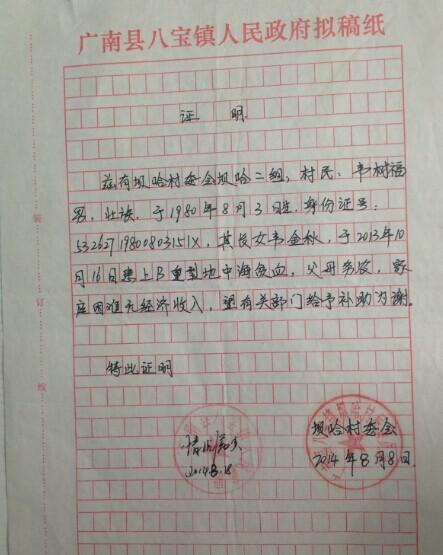 广南县八宝镇人民政府拟稿纸
证 明
兹有坝哈村委会坝哈二组，村民：韦树福
男，壮族，于1980年8月3日生，身份证号：
53262719800803151X，其长女韦金秋，于2013年10
月16日患上B重型地中海贫血，父母务农，家
庭困难无经济收入，望有关部门给予补助为谢。
特此证明
坝哈村委会
2014年8月8日
情况属实
2014.8.18
装
订
线